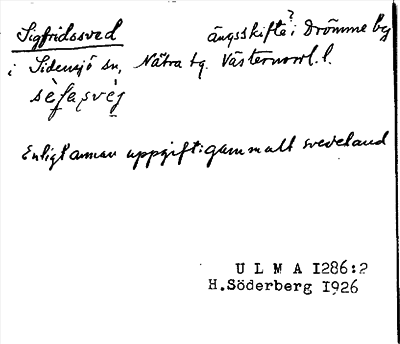 Sigfridssved ängsskifte? i Drömme by
i Sidensjö sn, Nätra tg. Västernorrl. l.
sèfasvèj
Enligt annan uppgift: gammalt svedeland
U L M A 1286:2
H.Söderberg 1926